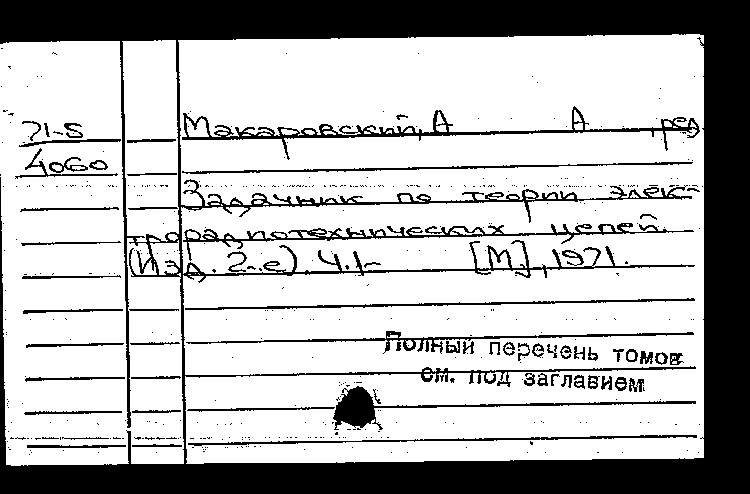 71-5 Макаровский, А А , ред
4060
Задачник по теории элек-
трорадиотехнических цепей.
(Изд. 2-е). Ч.1- [М], 1971.
Полный перечень томов
см. под заглавием